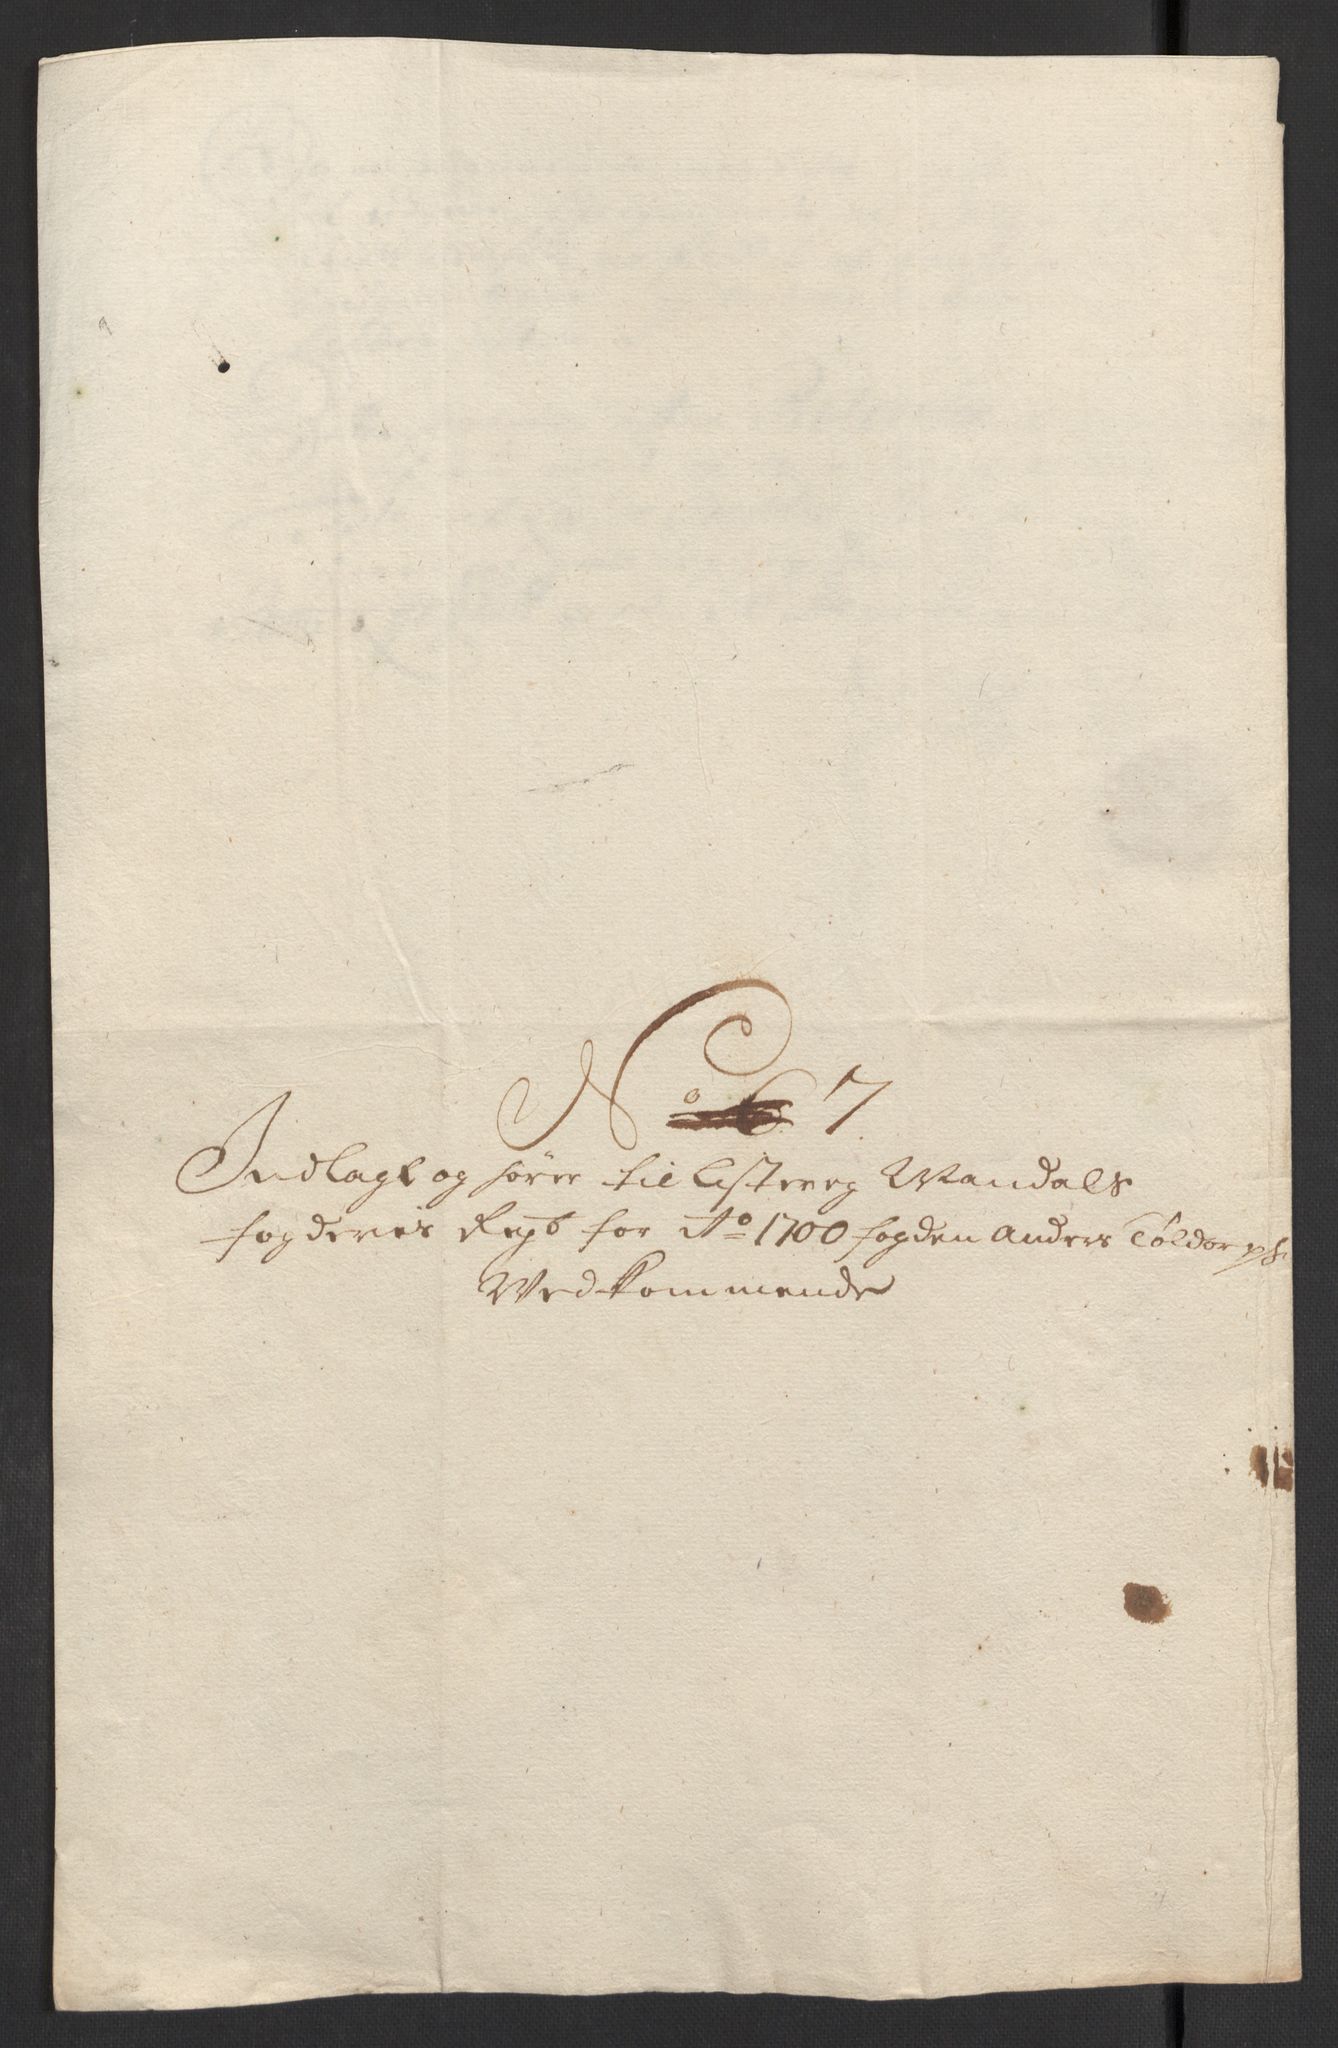 No 7
Indlagt og hörer til Lister og Mandals
fogderies Regsb for Ao 1700 fogden Anders Töldorph
Vedkommende